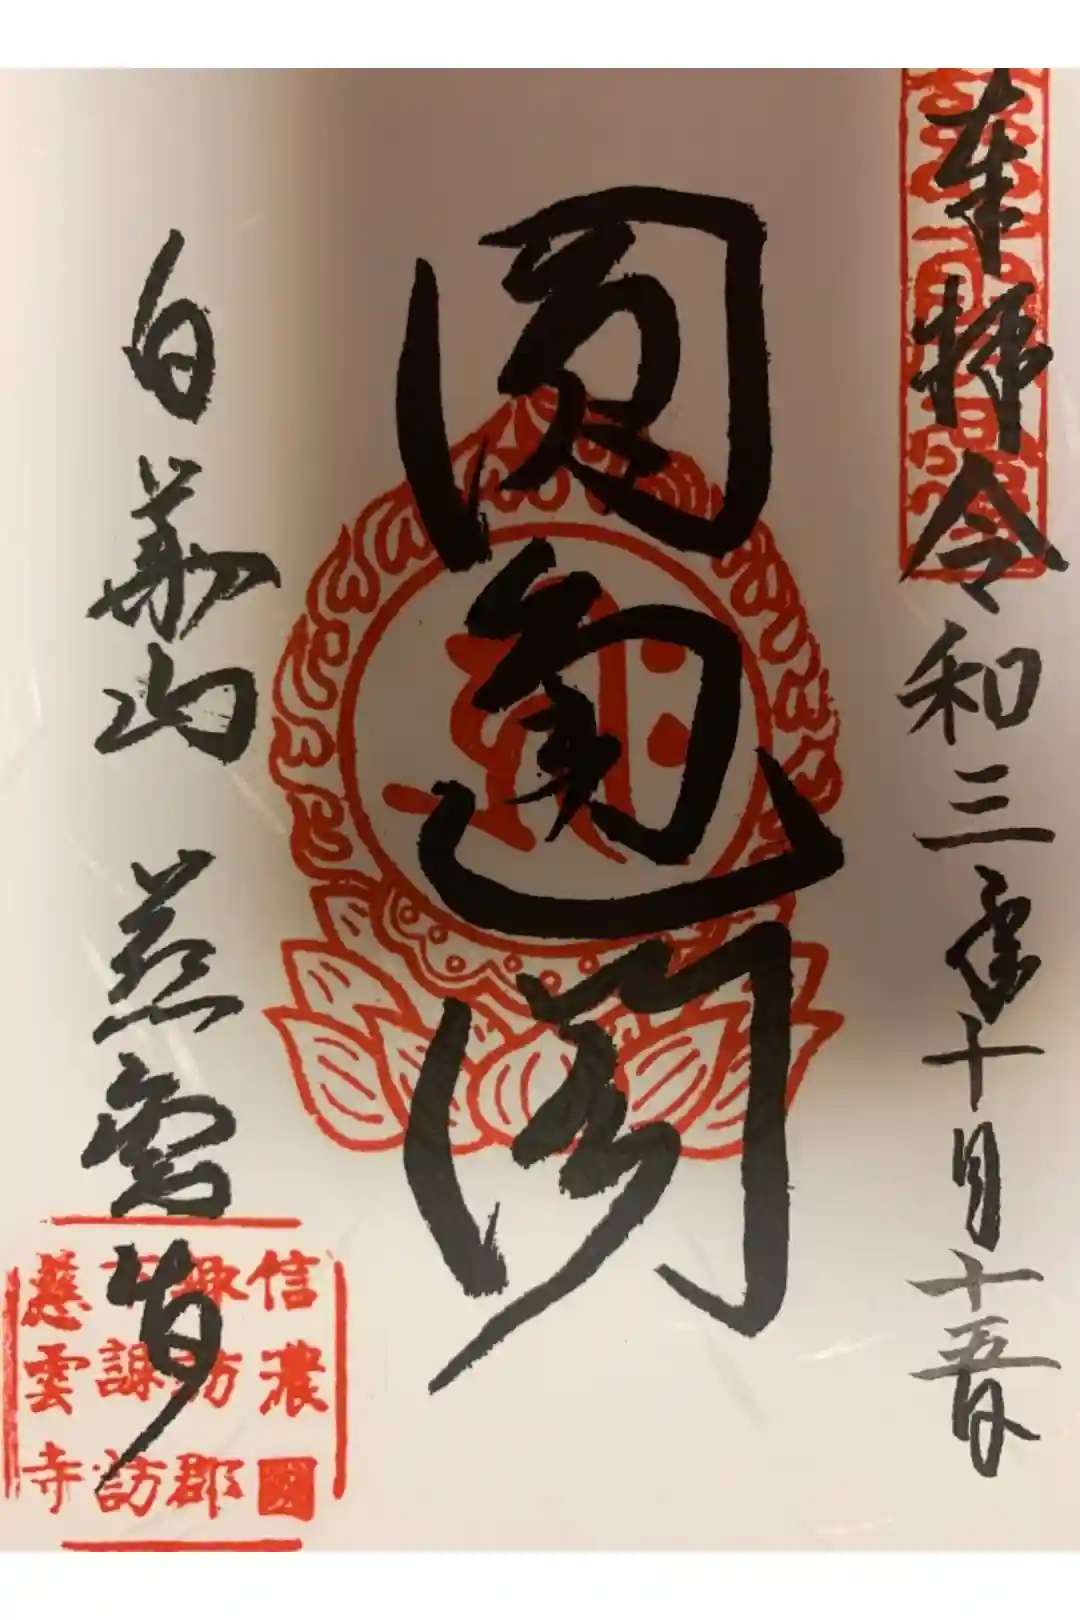 奉拝令和三年十月十五日
圓通閣
白華山 慈雲寺
信濃國
諏訪郡
下諏訪
慈雲寺